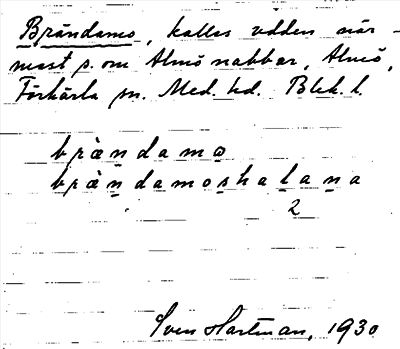 Brändamo, kallas udden när-
mast s. om Almö nabbar, Almö,
Förkärla sn. Med. hd. Blek. l.
bràndamɷ
bràndamoskalana
2
Sven Hartman, 1930